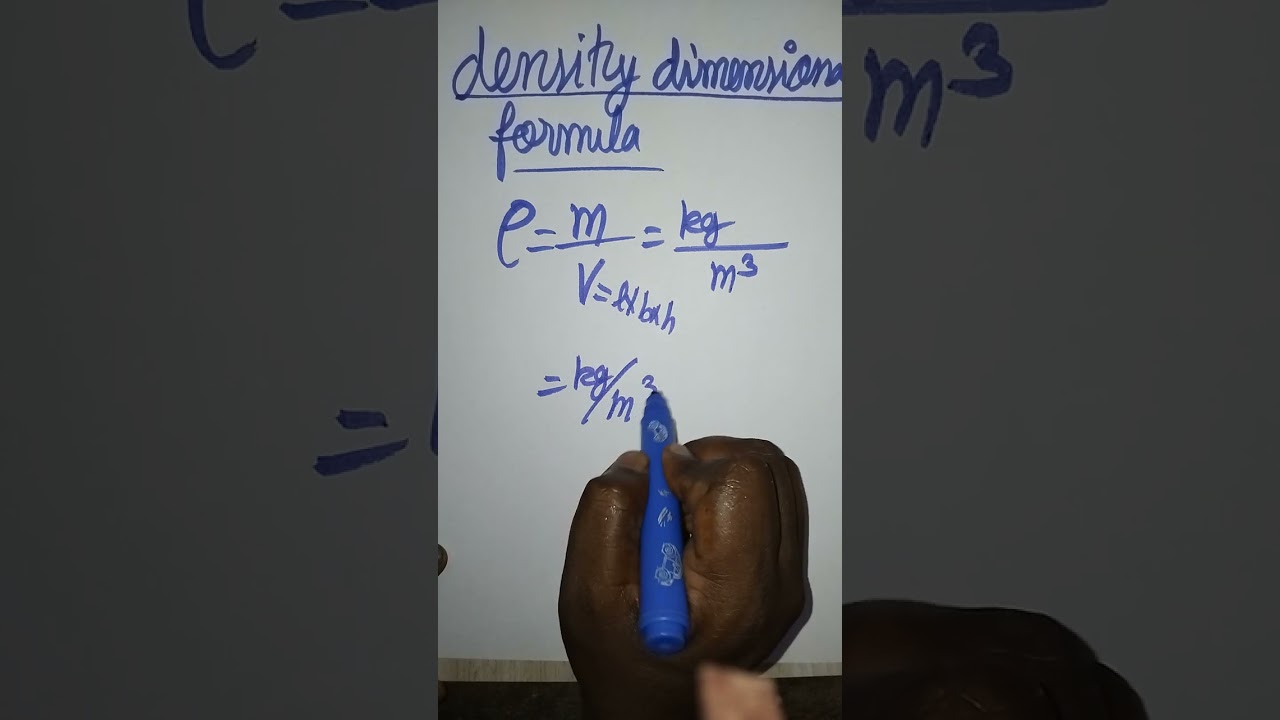 density dimensiona
formula
ρ = m/V = kg/m³
V = l×b×h
= kg/m³